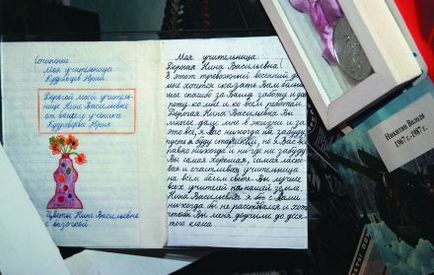 Сочинение
Моя учительница
Кудрявцев Юрий
Дорогой моей учитель-
нице Нине Васильевне
от вашего ученика
Кудрявцева Юрия.
Цветы Нине Васильевне
с вазочкой.
Моя учительница
Дорогая Нина Васильевна!
В этот тревожный весенний день
мне хочется сказать Вам больш
ое спасибо за Вашу заботу и доб
роту ко мне и ко всем ребятам.
Дорогая Нина Васильевна Вы
многое дали мне в жизни и за
это всё, я Вас никогда не забуду
пусть я буду стариком, но я Вас всё
равно никогда и нигде не забуду
Вы самая хорошая, самая ласко
вая и счастливая учительница
на всём белом свете. Вы лучше
всех учителей на нашей земле.
Нина Васильевна я бы с Вами
никогда бы не расставался и хоте
чтобы Вы меня доучили до деся
того класса.
Никитин Володя
1967 г.-1987 г.